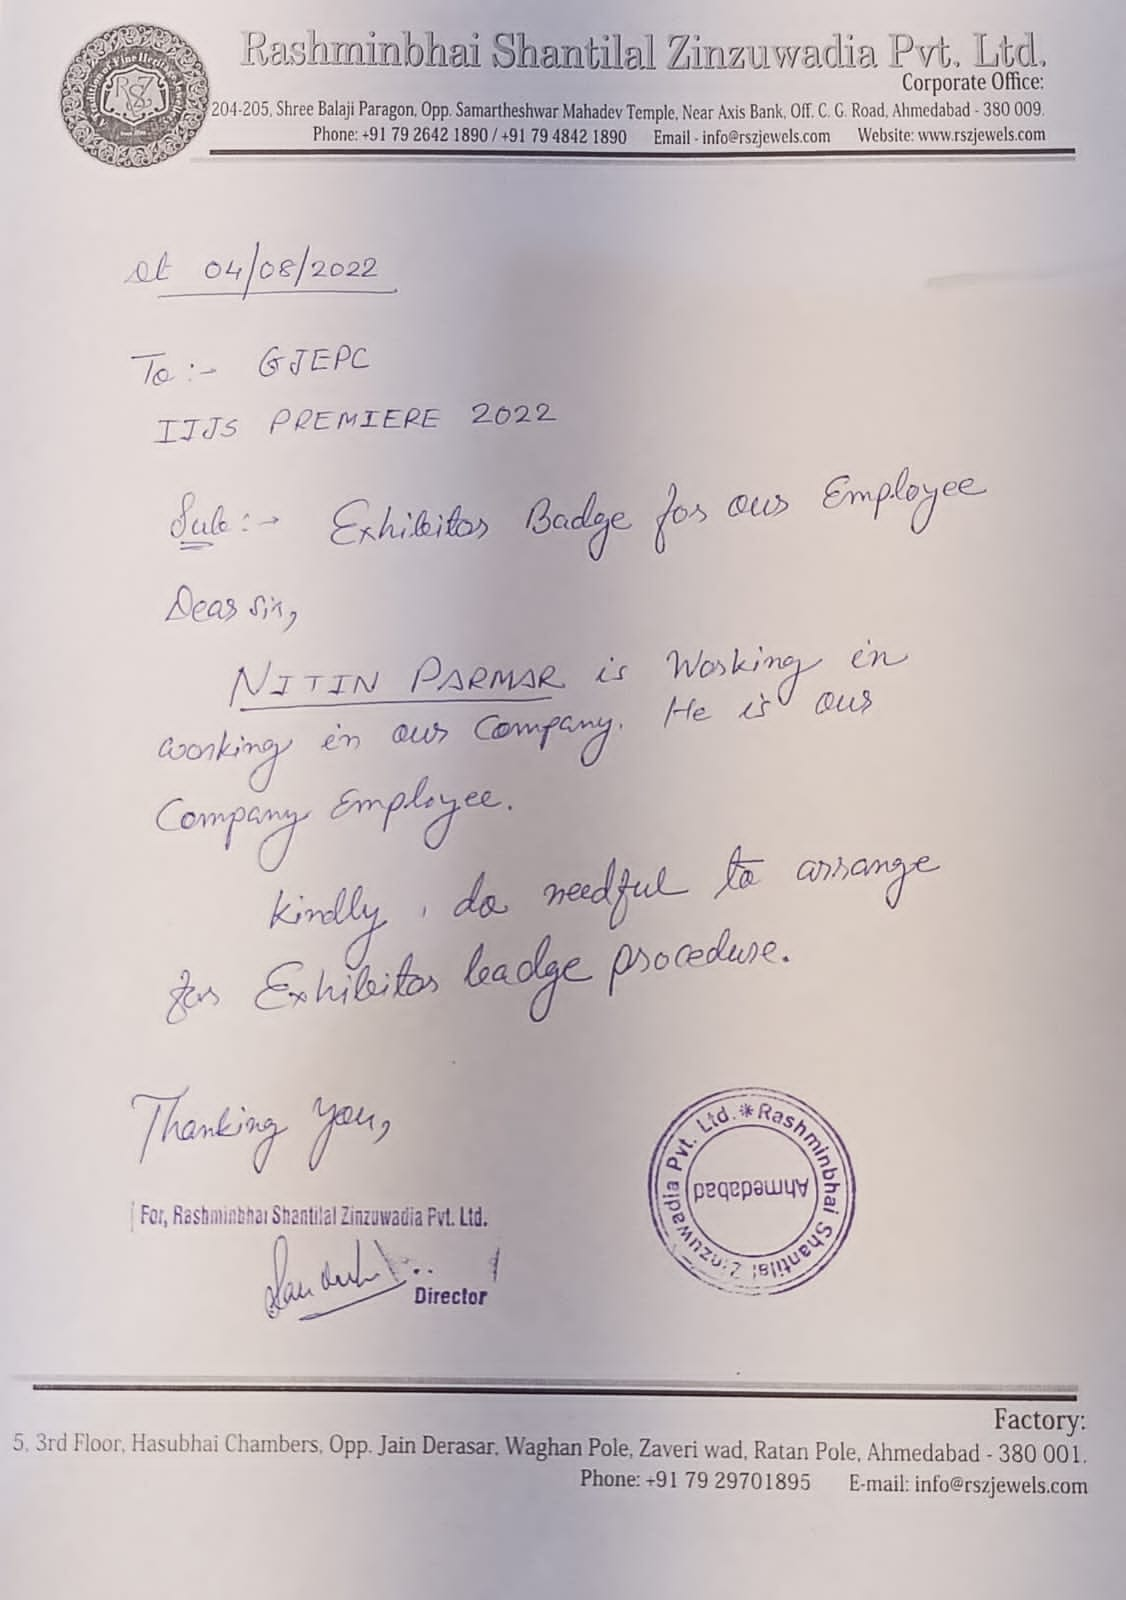 Rashminbhai Shantilal Zinzuwadia Pvt. Ltd.
Corporate Office:
204-205, Shree Balaji Paragon, Opp. Samartheshwar Mahadev Temple, Near Axis Bank, Off. C. G. Road, Ahmedabad - 380 009.
Phone: +91 79 2642 1890 / +91 79 4842 1890 Email - info@rszjewels.com Website: www.rszjewels.com
RSZ
dt 04/08/2022
To :- GJEPC
IIJS PREMIERE 2022
Sub :- Exhibitor Badge for our Employee
Dear Sir,
NITIN PARMAR is Working in
working in our Company. He is our
Company Employee.
Kindly, do needful to arrange
for Exhibitor badge procedure.
Thanking You,
For, Rashminbhai Shantilal Zinzuwadia Pvt. Ltd.
Director
Rashminbhai Shantilal Zinzuwadia Pvt. Ltd. *
Ahmedabad
Factory:
5, 3rd Floor, Hasubhai Chambers, Opp. Jain Derasar, Waghan Pole, Zaveri wad, Ratan Pole, Ahmedabad - 380 001.
Phone: +91 79 29701895 E-mail: info@rszjewels.com